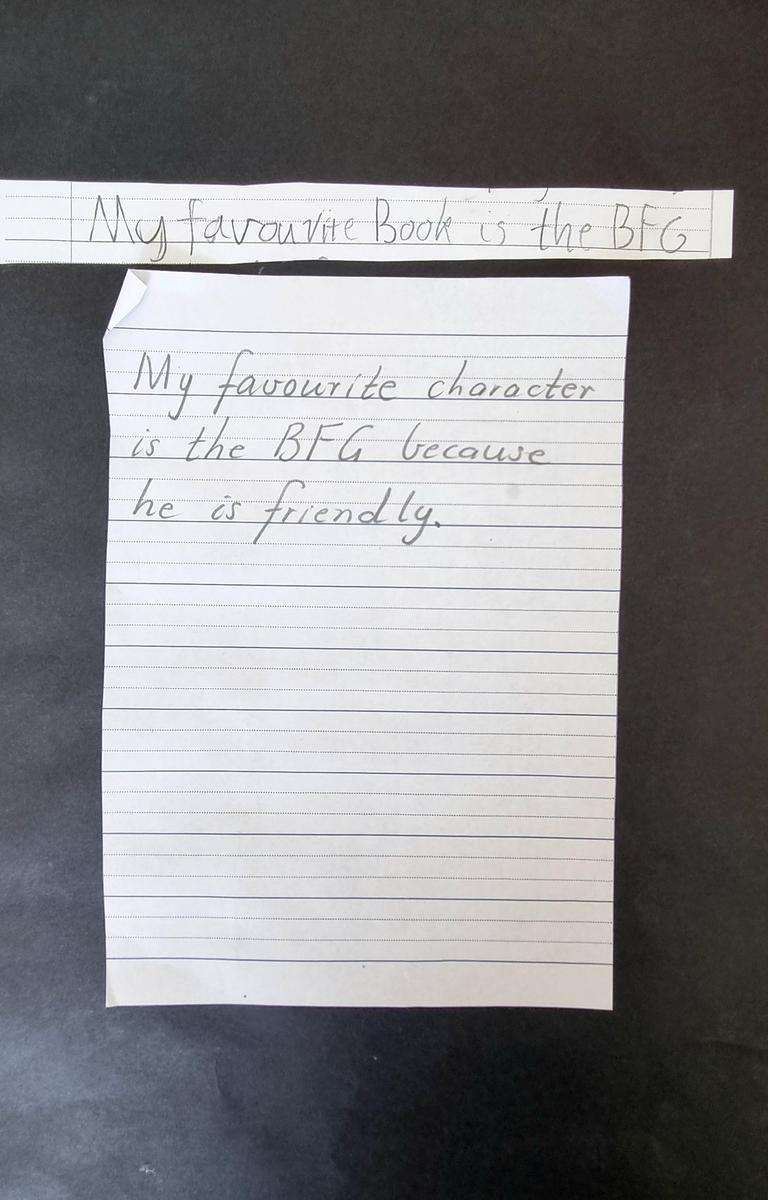 My favourite Book is the BFG
My favourite character
is the BFG because
he is friendly.